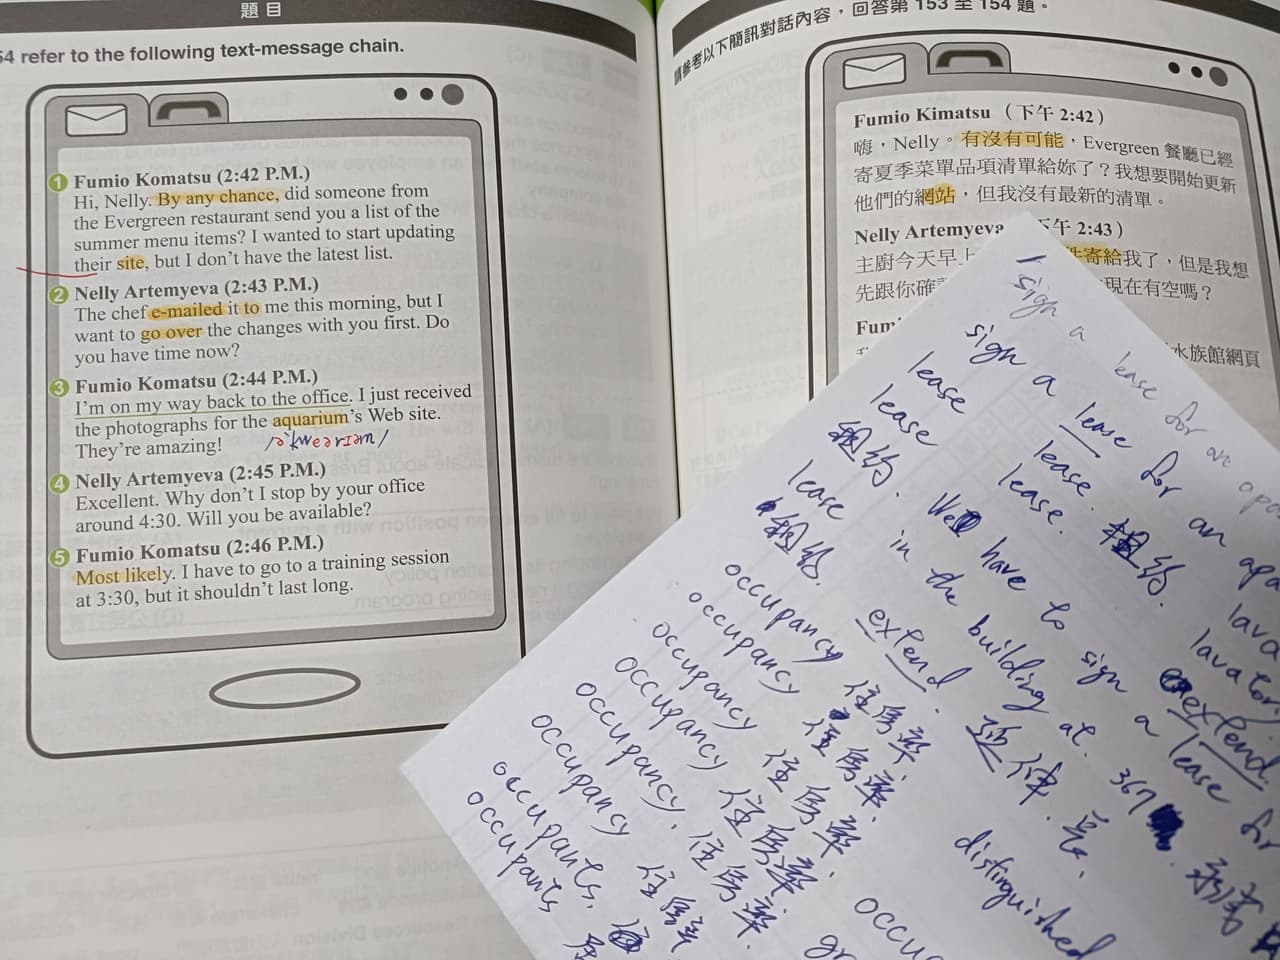 題目
54 refer to the following text-message chain.
1 Fumio Komatsu (2:42 P.M.)
Hi, Nelly. By any chance, did someone from
the Evergreen restaurant send you a list of the
summer menu items? I wanted to start updating
their site, but I don't have the latest list.
2 Nelly Artemyeva (2:43 P.M.)
The chef e-mailed it to me this morning, but I
want to go over the changes with you first. Do
you have time now?
3 Fumio Komatsu (2:44 P.M.)
I'm on my way back to the office. I just received
the photographs for the aquarium's Web site.
They're amazing!
/əˈkwɛrɪəm/
4 Nelly Artemyeva (2:45 P.M.)
Excellent. Why don't I stop by your office
around 4:30. Will you be available?
5 Fumio Komatsu (2:46 P.M.)
Most likely. I have to go to a training session
at 3:30, but it shouldn't last long.
請參考以下簡訊對話內容，回答第 153 至 154 題。
Fumio Kimatsu（下午 2:42）
嗨，Nelly。有沒有可能，Evergreen 餐廳已經
寄夏季菜單品項清單給妳了？我想要開始更新
他們的網站，但我沒有最新的清單。
Nelly Artemyeva 下午 2:43）
主廚今天早上 件寄給我了，但是我想
先跟你確 現在有空嗎？
Fumi
水族館網頁
sign a lease for an apa
sign a lease for an apa
lease lease lava
lease lease. 租約. lavatory
租約. We have to sign a lease for
lease in the building at 367
租約. extend. 延伸. extend.
occupancy 住房率.
occupancy 住房率.
occupancy 住房率.
occupancy 住房率.
occupancy. 住房率.
occupancy 住房率
occupants.
occupants
distinguished
occu
gr